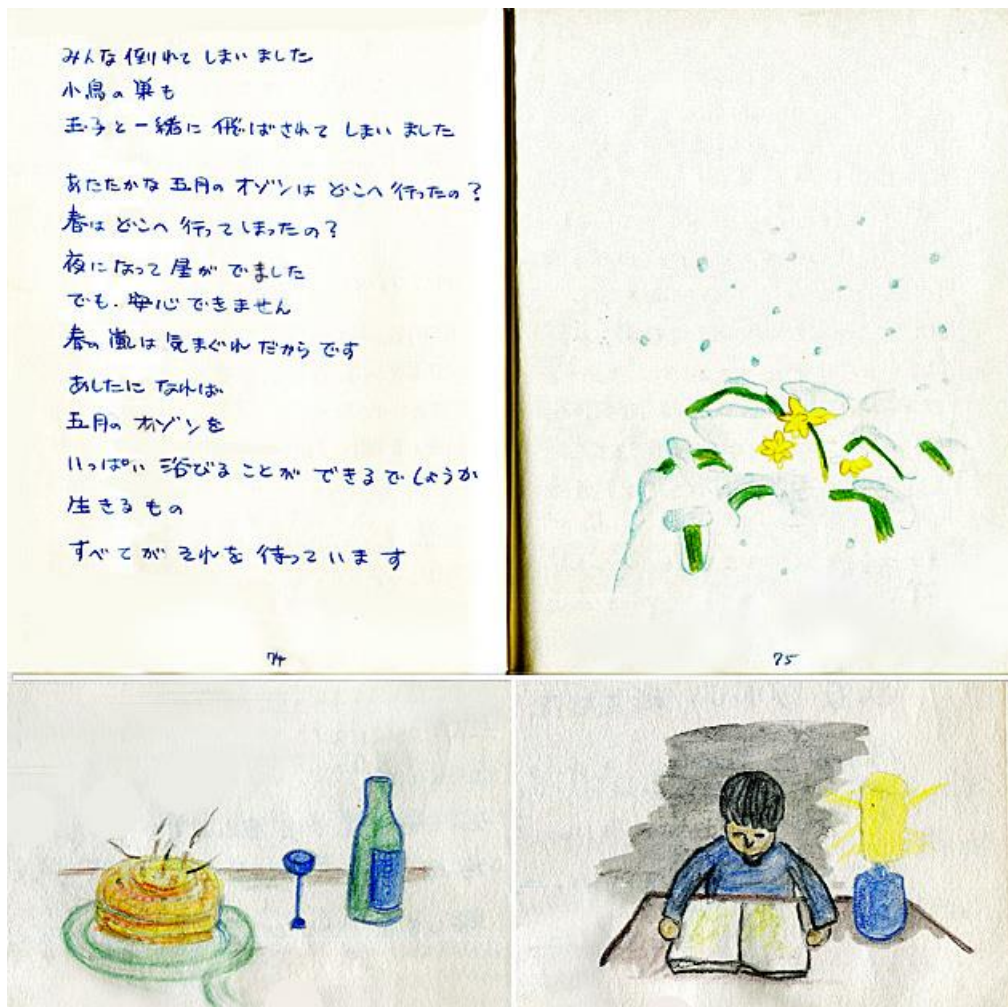 みんな倒れてしまいました
小鳥の巣も
玉子と一緒に飛ばされてしまいました
あたたかな五月のオゾンはどこへ行ったの?
春はどこへ行ってしまったの?
夜になって星がでました
でも.安心できません
春の嵐は気まぐれだからです
あしたになれば
五月のオゾンを
いっぱい浴びることができるでしょうか
生きるもの
すべてがそれを待っています
74
75